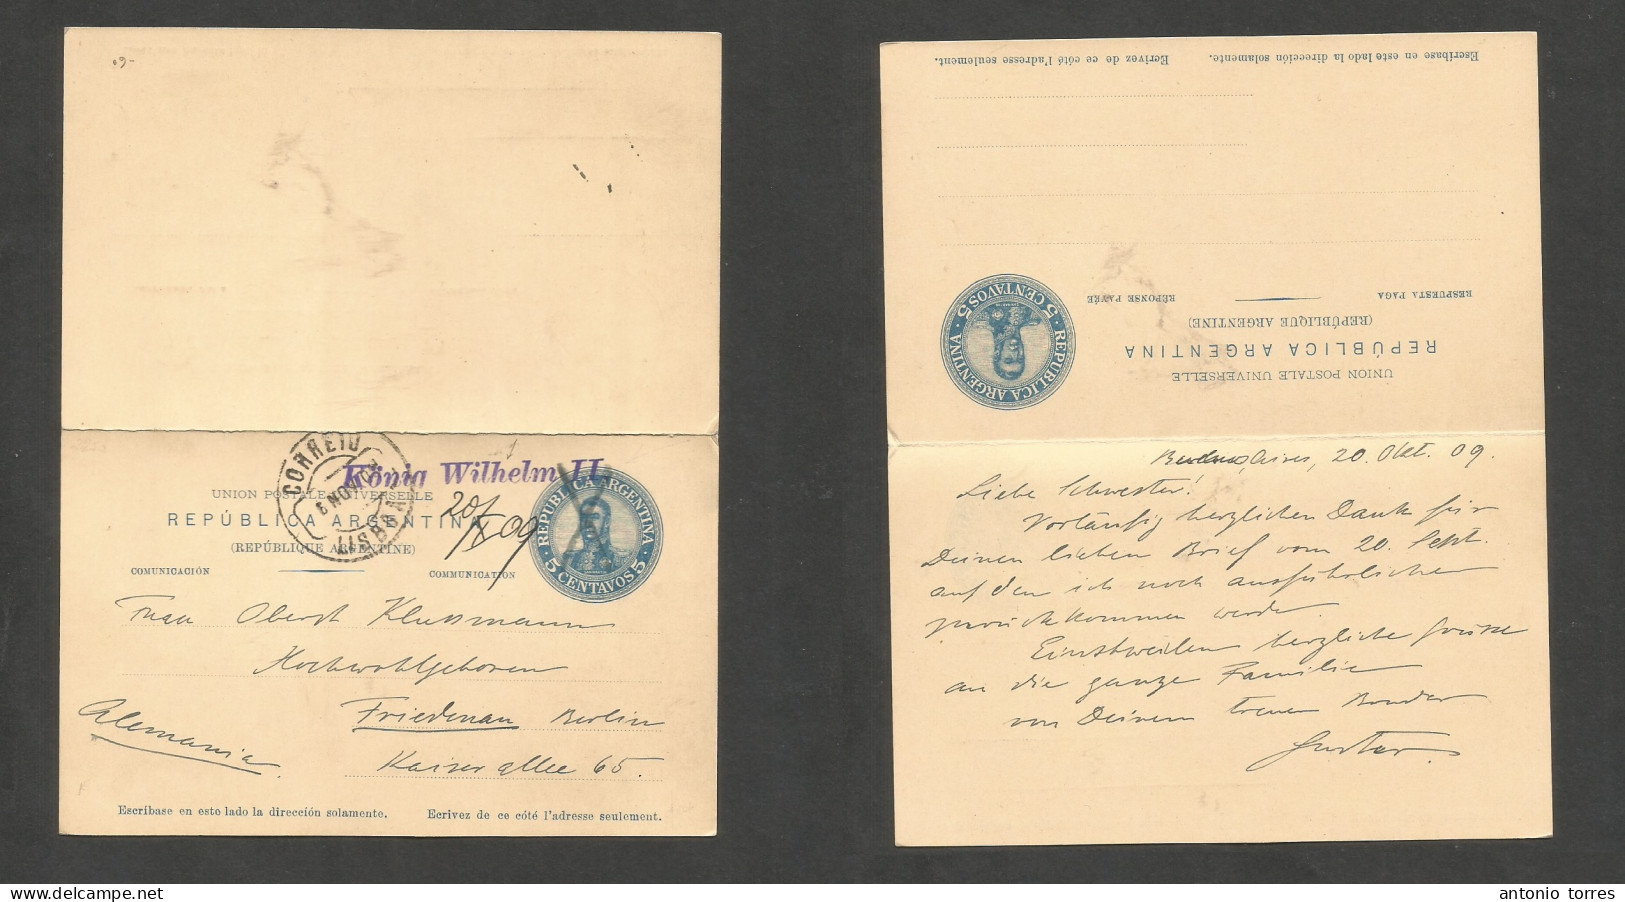 -61
CORREIO
6 NOV 09
LISBOA
König Wilhelm II
UNION POSTALE UNIVERSELLE
REPÚBLICA ARGENTINA
(REPÚBLIQUE ARGENTINE)
COMUNICACIÓN COMMUNICATION
20/X 09
REPUBLICA ARGENTINA
5 CENTAVOS 5
Frau Oberst Klussmann
Hochwohlgeboren
Friedenau Berlin
Alemania
Kaiser allee 65.
Escríbase en este lado la dirección solamente. Ecrivez de ce côté l'adresse seulement.
Escríbase en este lado la dirección solamente. Ecrivez de ce côté l'adresse seulement.
RESPUESTA PAGA RÉPONSE PAYÉE
(REPÚBLIQUE ARGENTINE)
REPÚBLICA ARGENTINA
UNION POSTALE UNIVERSELLE
REPUBLICA ARGENTINA
5 CENTAVOS 5
Buenos Aires, 20. Okt. 09.
Liebe Schwester!
Vorläufig herzlichen Dank für
Deinen lieben Brief vom 20. Sept.
auf den ich noch ausführlicher
zurückkommen werde
Einstweilen herzliche Grüsse
an die ganze Familie
von Deinem treuen Bruder
Gustav
antonio torres